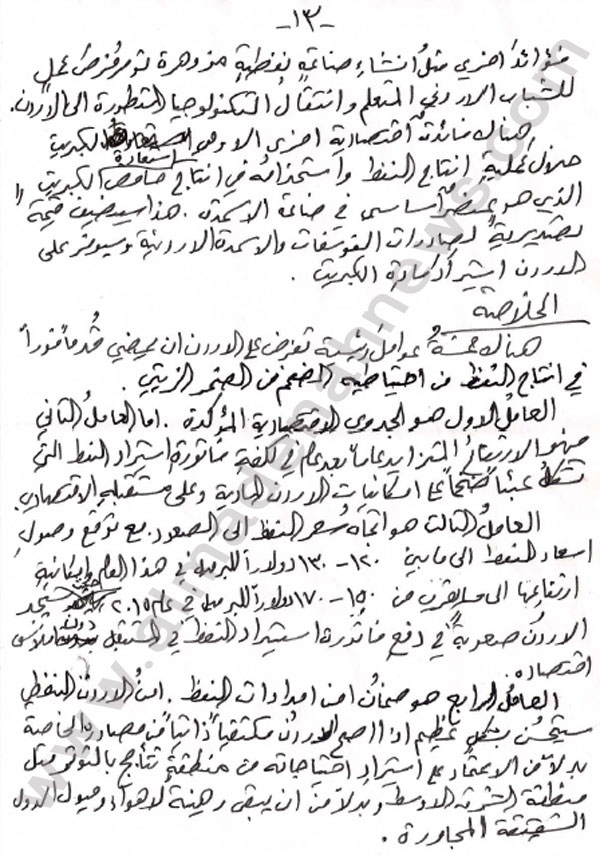 -١٣-
فوائد اخرى مثل انشاء صناعة نفطية مزدهرة توفر فرص عمل
للشباب الاردني المتعلم وانتقال التكنولوجيا المتطورة الى الاردن.
هناك فائدة اقتصادية اخرى الا وهو استعادة الكبريت
خلال عملية انتاج النفط واستخدامه في انتاج حامض الكبريت
الذي هو عنصر اساسي في صناعة الاسمدة. هذا سيضيف قيمة
تصديرية لصادرات الفوسفات والاسمدة الاردنية وسيوفر على
الاردن استيراد مادة الكبريت.
الخلاصة
هناك خمسة عوامل رئيسية تفرض على الاردن ان يمضي قدما فورا
في انتاج النفط من احتياطيه الضخم من الصخر الزيتي.
العامل الاول هو الجدوى الاقتصادية المؤكدة. اما العامل الثاني
فهو الارتفاع المتزايد عاما بعد عام في كلفة فاتورة استيراد النفط التي
تشكل عبئا ضخما على امكانيات الاردن المادية وعلى مستقبله الاقتصادي.
العامل الثالث هو اتجاه سعر النفط الى الصعود. مع توقع وصول
اسعار النفط الى ما بين ١٢٠-١٣٠ دولارا للبرميل في هذا العام وامكانية
ارتفاعها الى ما يقرب من ١٥٠-١٧٠ دولارا للبرميل في عام ٢٠١٥ سيجد
الاردن صعوبة في دفع فاتورة استيراد النفط في المستقبل دون
اقتصاده.
العامل الرابع هو ضمان امن امدادات النفط. امن الاردن النفطي
سيتحسن بشكل عظيم اذا اصبح الاردن مكتفيا ذاتيا من مصادره الخاصة
بدلا من الاعتماد على استيراد احتياجاته من منطقة تتأجج بالتوتر مثل
منطقة الشرق الاوسط وبدلا من ان يبقى رهينة لاهواء وميول الدول
الشقيقة المجاورة.
www.almadenahnews.com